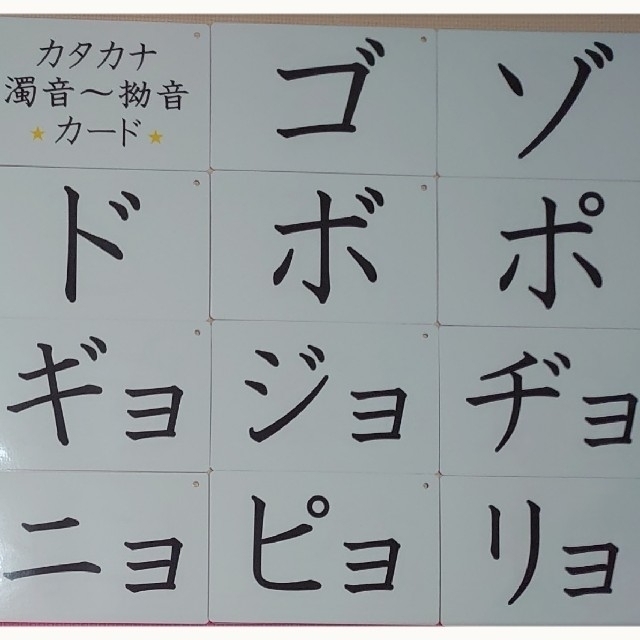 カタカナ
濁音～拗音
★カード★
ゴ
ゾ
ド
ボ
ポ
ギョ
ジョ
ヂョ
ニョ
ピョ
リョ